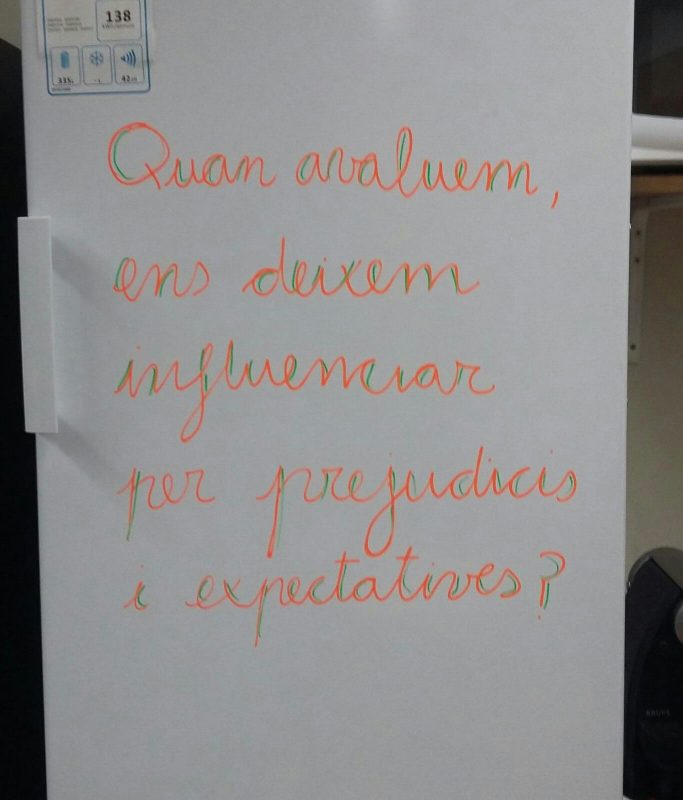 138
335L
42
Quan avaluem,
ens deixem
influenciar
per prejudicis
i expectatives?
KRUPS